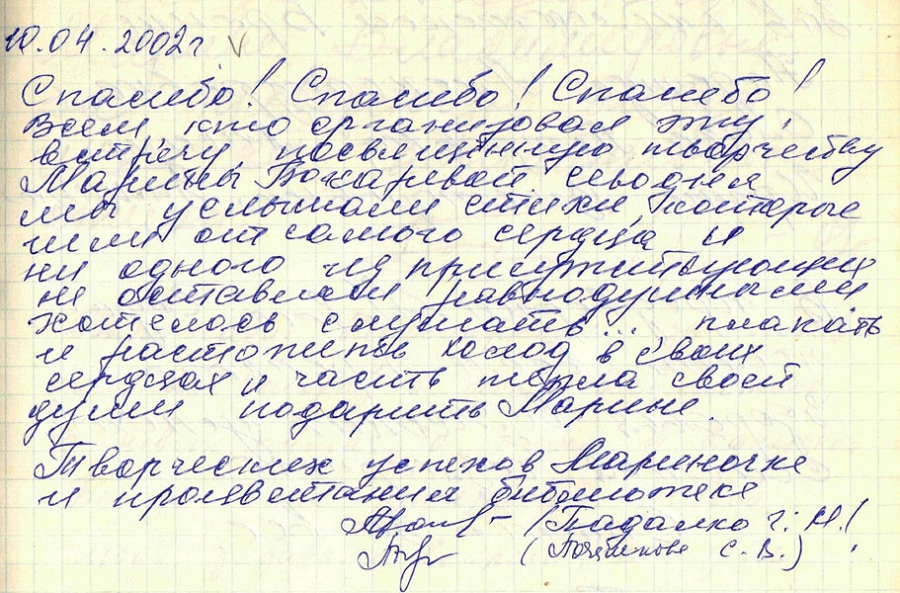 10.04.2002г V
Спасибо! Спасибо! Спасибо!
Всем, кто организовал эту
встречу, посвящённую творчеству
Марины Бокаревой. Сегодня
мы услышали стихи, которые
шли от самого сердца, и
ни одного из присутствующих
не оставили равнодушными
хотелось слушать... плакать
и растопить холод в своих
сердцах и часть тепла своей
души подарить Марине.
Творческих успехов Мариночке
и процветания библиотеке
(Падалко Г. Н.)
( С. В.)